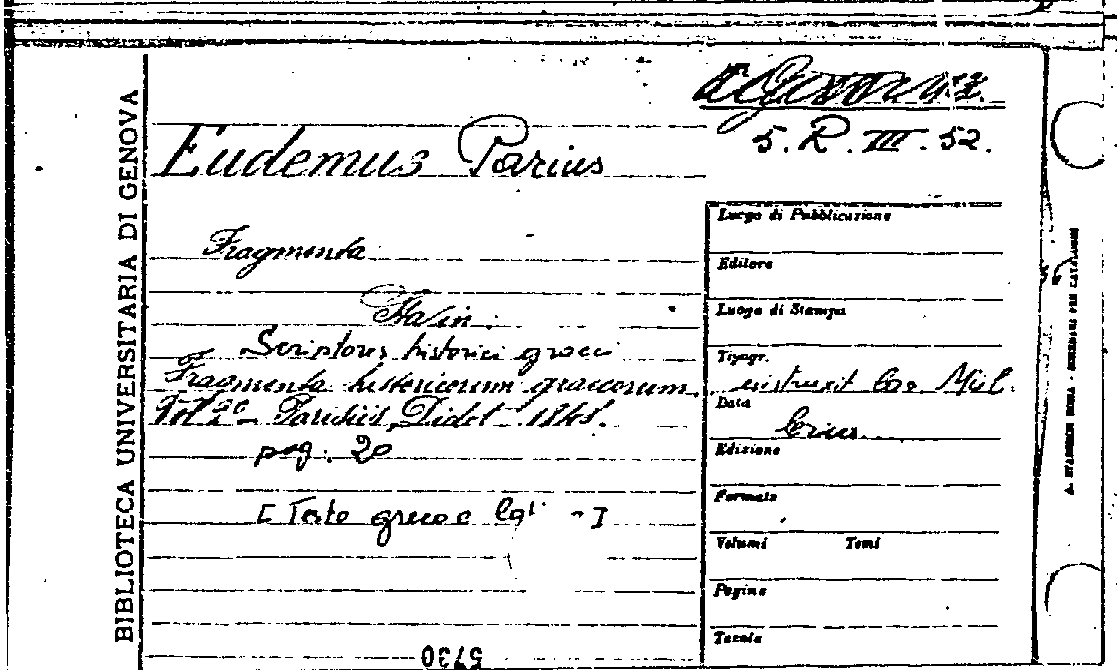 5. R. III. 52.
Eudemus Parius
Fragmenta
Sta in:
Scriptores historici graeci
Fragmenta historicorum graecorum. instruxit Car. Mül-
lerus
Vol 2º - Parisiis, Didot - 1848.
pag. 20
[Testo greco e
BIBLIOTECA UNIVERSITARIA DI GENOVA
Luogo di Pubblicazione
Editore
Luogo di Stampa
Tipogr.
Data
Edizione
Formato
Volumi Tomi
Pagine
Tavole
5730